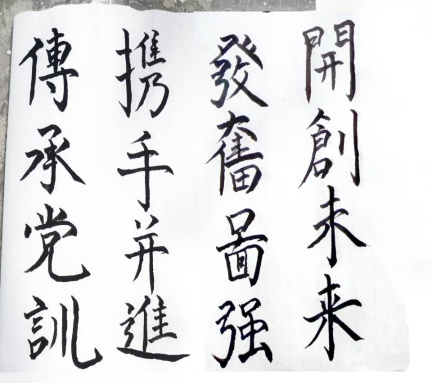 開創未来
發奮啚强
携手并進
傳承党訓